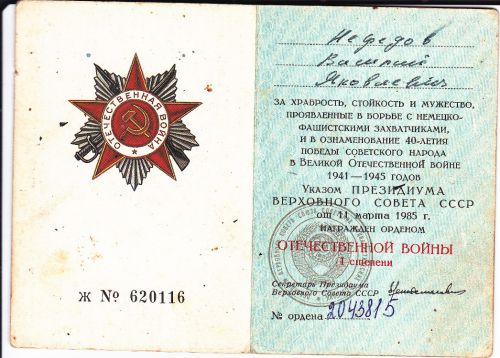 ОТЕЧЕСТВЕННАЯ ВОЙНА
Ж № 620116
Нефедов
Василий
Яковлевич
ЗА ХРАБРОСТЬ, СТОЙКОСТЬ И МУЖЕСТВО,
ПРОЯВЛЕННЫЕ В БОРЬБЕ С НЕМЕЦКО-
ФАШИСТСКИМИ ЗАХВАТЧИКАМИ,
И В ОЗНАМЕНОВАНИЕ 40-ЛЕТИЯ
ПОБЕДЫ СОВЕТСКОГО НАРОДА
В ВЕЛИКОЙ ОТЕЧЕСТВЕННОЙ ВОЙНЕ
1941—1945 ГОДОВ
УКАЗОМ ПРЕЗИДИУМА
ВЕРХОВНОГО СОВЕТА СССР
от 11 марта 1985 г.
НАГРАЖДЕН ОРДЕНОМ
ОТЕЧЕСТВЕННОЙ ВОЙНЫ
I степени
Секретарь Президиума
Верховного Совета СССР
№ ордена 2043815